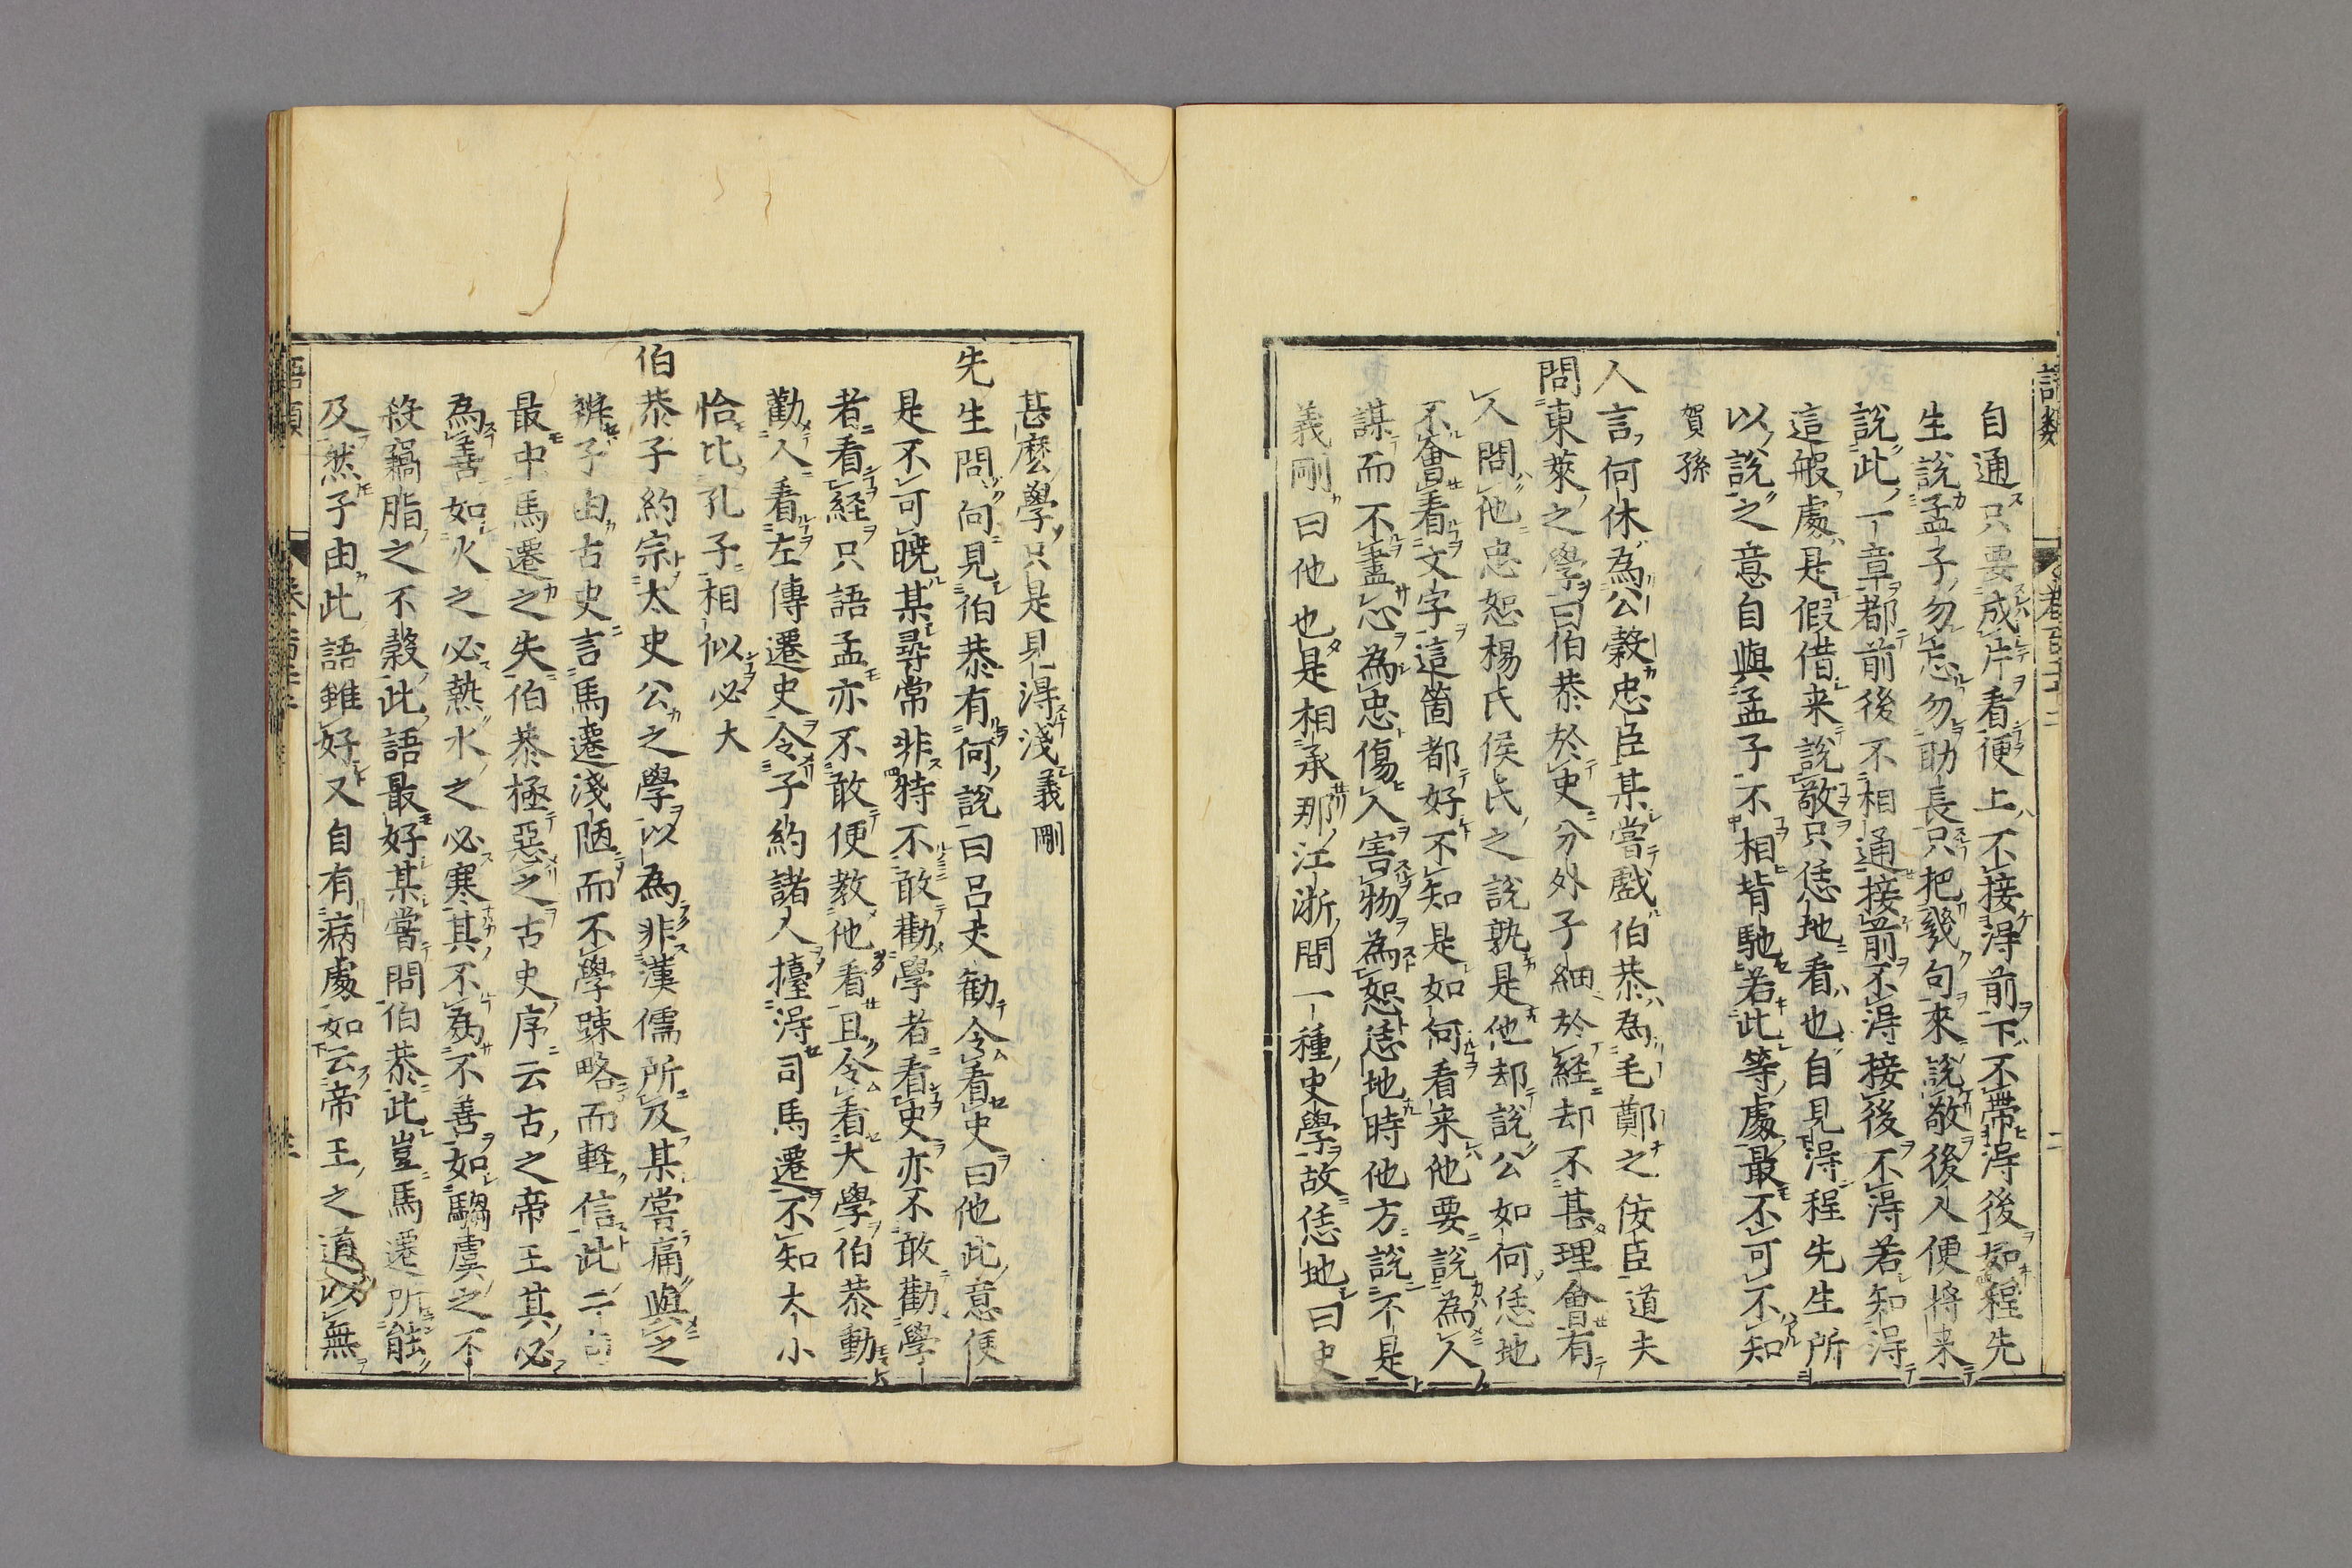 語類 卷百二十二 二
自通只要成片看便上不接得前下不帶得後如程先
生說孟子勿忘勿助長只把幾句來說敬後人便將来
說此一章都前後不相通接前不得接後不得若知得
這般處是假借来說敬只恁地看也自見得程先生所
以說之意自與孟子不相背馳若此等處最不可不知
賀孫
人言何休為公穀忠臣某嘗戯伯恭為毛鄭之佞臣道夫
問東萊之學曰伯恭於史分外子細於経却不甚理會有
人問他忠恕楊氏侯氏之說孰是他却說公如何恁地
不會看文字這箇都好不知是如何看来他要說為人
謀而不盡心為忠傷人害物為恕恁地時他方說不是
義剛曰他也是相承那江浙間一種史學故恁地曰史
甚麼學只是見得淺義剛
先生問向見伯恭有何說曰呂丈勧令看史曰他此意便
是不可曉某尋常非特不敢勸學者看史亦不敢勸學
者看経只語孟亦不敢便教他看且令看大學伯恭動
勸人看左傳遷史令子約諸人擡得司馬遷不知大小
恰比孔子相似必大
伯恭子約宗太史公之學以為非漢儒所及某嘗痛與之
辨子由古史言馬遷淺陋而不學踈略而軽信此二
最中馬遷之失伯恭極惡之古史序云古之帝王其必
為善如火之必熱水之必寒其不為不善如騶虞之不
殺竊脂之不穀此語最好某嘗問伯恭此豈馬遷所能
及然子由此語雖好又自有病處如云帝王之道以無
語類